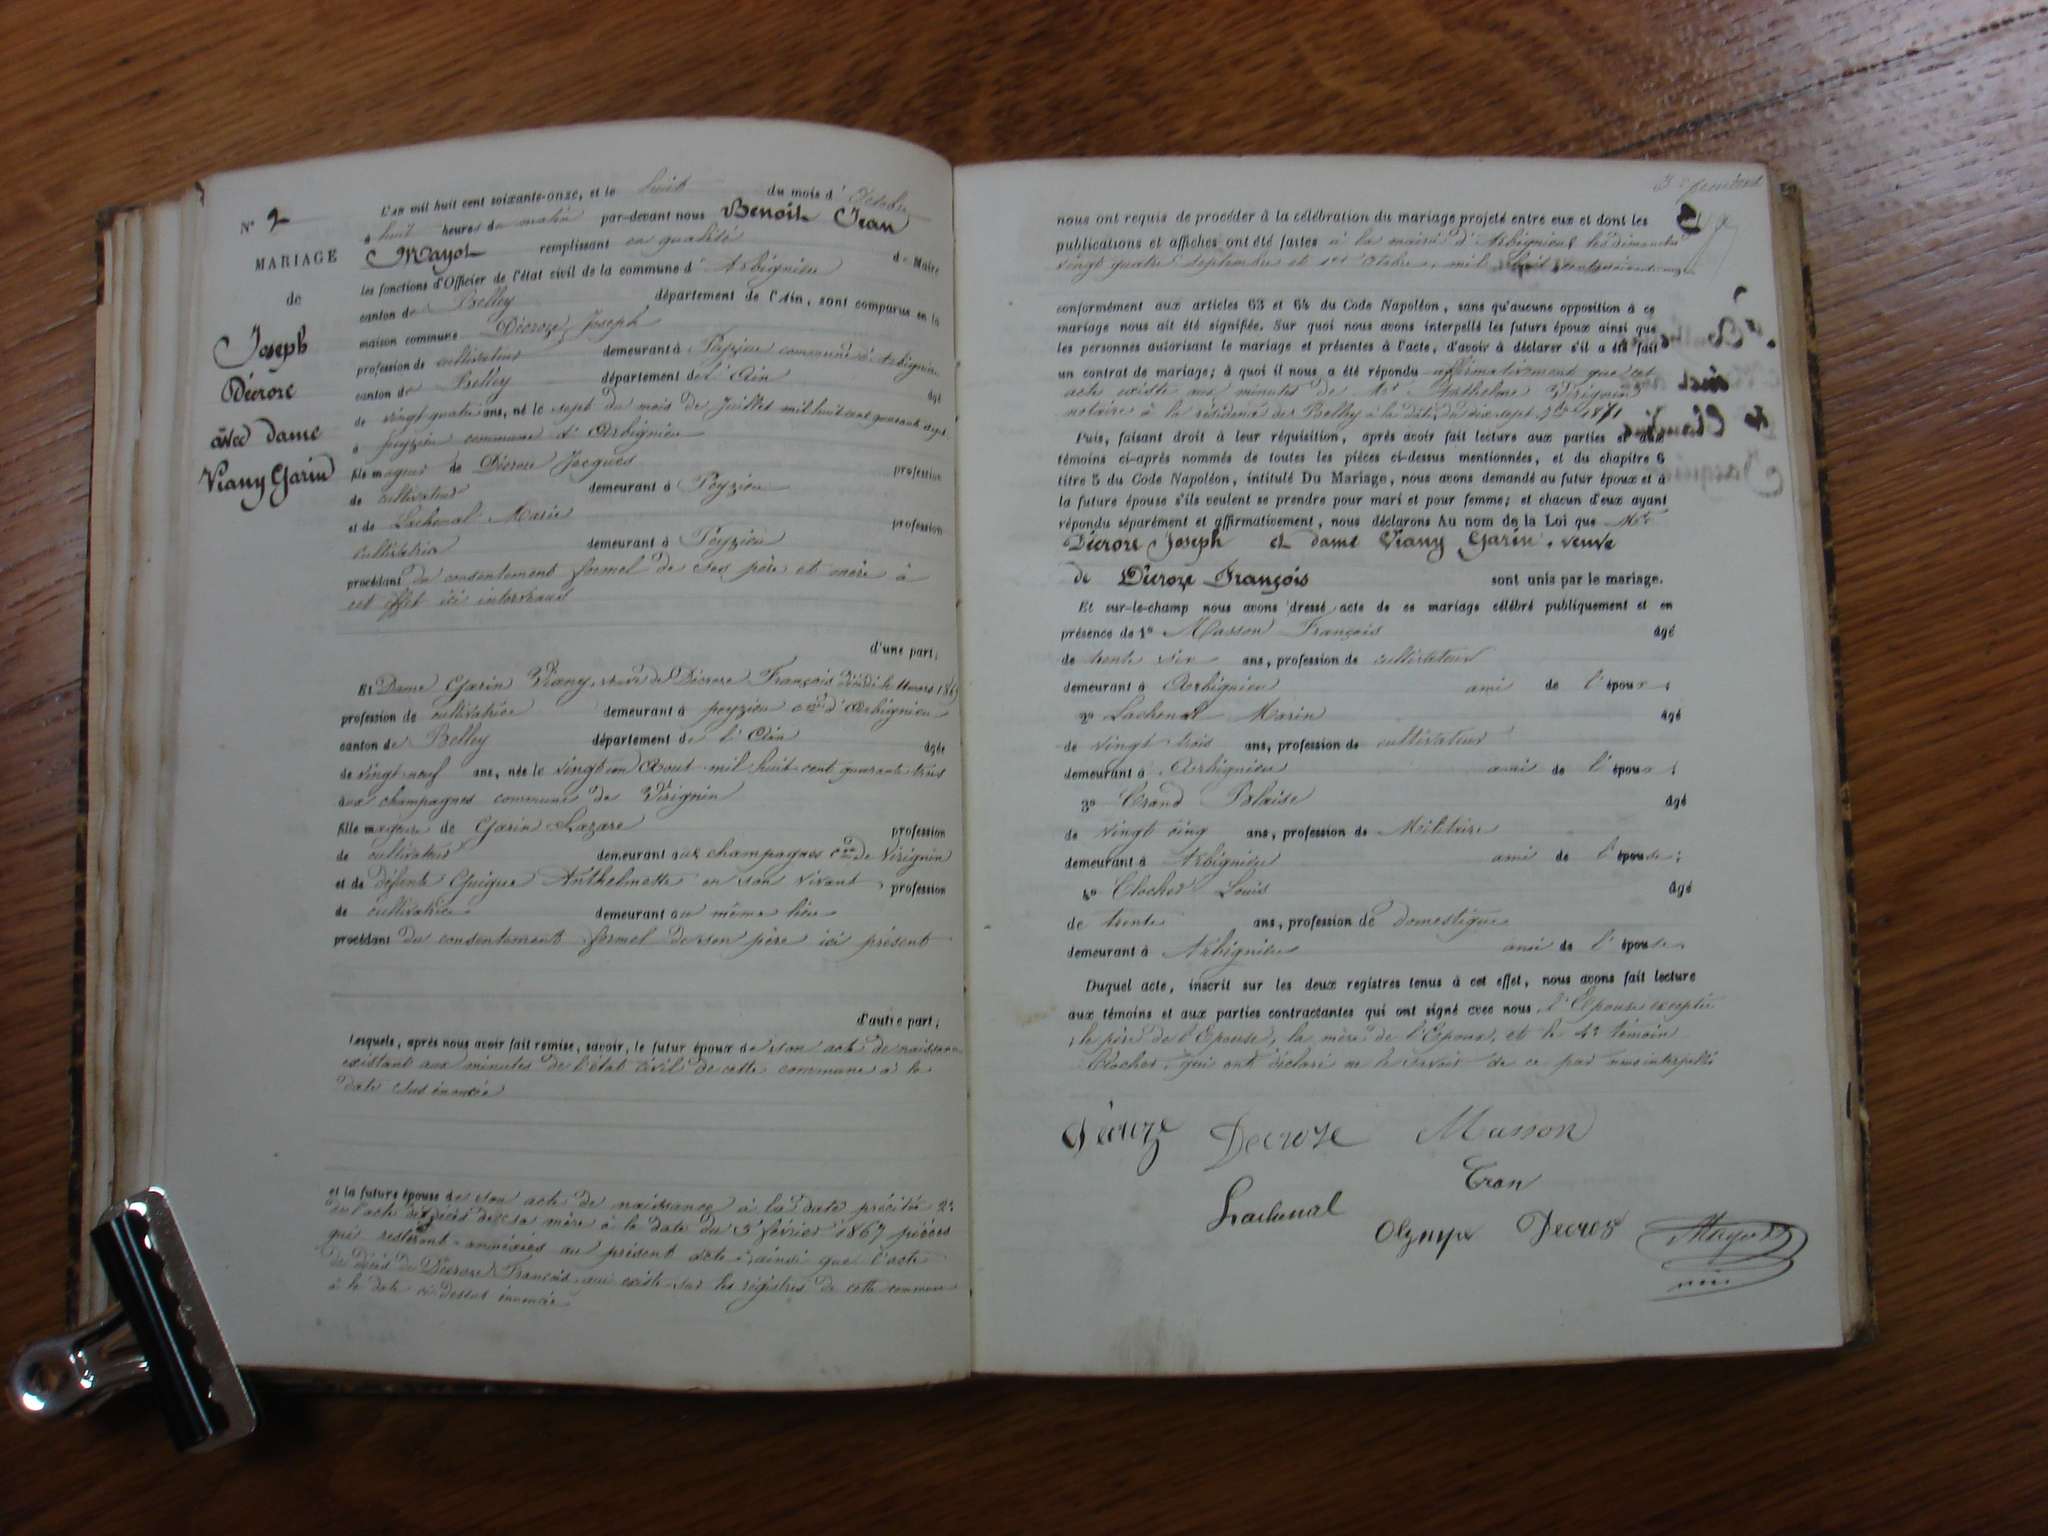 N° 2
MARIAGE
de
Joseph
Décroze
avec dame
Viany Garin
L'an mil huit cent soixante-onze, et le huit du mois d'Octobre
à huit heures du matin par-devant nous Benoit Jean
Mayot remplissant en qualité de Maire
les fonctions d'Officier de l'état civil de la commune d'Arbignieu
canton de Belley département de l'Ain, sont comparus en la
maison commune Décroze Joseph
profession de cultivateur demeurant à Peyzieu commune d'Arbignieu
canton de Belley département de l'Ain âgé
de vingt quatre ans, né le sept du mois de Juillet mil huit cent quarante sept
à peyzieu commune d'Arbignieu
fils majeur de Décroze Jacques profession
de cultivateur demeurant à Peyzieu
et de Lachenal Marie profession
cultivatrice demeurant à Peyzieu
procédant du consentement formel de ses père et mère à
cet effet ici intervenus
d'une part;
Et Dame Garin Viany, veuve de Décroze François décédé le 11 mars 1869
profession de cultivatrice demeurant à peyzieu cne d'Arbignieu
canton de Belley département de l'Ain âgée
de vingt neuf ans, née le vingt un Aout mil huit cent quarante trois
aux champagnes commune de Virignin
fille majeure de Garin Lazare profession
de cultivateur demeurant aux champagnes cne de Virignin
et de défunte Guigue Anthelmette en son vivant profession
de cultivatrice demeurant au même lieu
procédant du consentement formel de son père ici présent
d'autre part;
Lesquels, après nous avoir fait remise, savoir, le futur époux de son acte de naissance
existant aux minutes de l'état civil de cette commune à la
date sus énoncée
et la future épouse de son acte de naissance à la date précitée 2°
de l'acte de décès de sa mère à la date du 3 février 1867 pièces
qui resteront annexées au présent acte; ainsi que l'acte
de décès de Décroze François qui existe sur les registres de cette commune
à la date ci-dessus énoncée
nous ont requis de procéder à la célébration du mariage projeté entre eux et dont les
publications et affiches ont été faites à la mairie d'Arbignieu les dimanches
vingt quatre septembre et 1er Octobre, mil huit cent soixante onze
conformément aux articles 63 et 64 du Code Napoléon, sans qu'aucune opposition à ce
mariage nous ait été signifiée. Sur quoi nous avons interpellé les futurs époux ainsi que
les personnes autorisant le mariage et présentes à l'acte, d'avoir à déclarer s'il a été fait
un contrat de mariage; à quoi il nous a été répondu affirmativement que cet
acte existe aux minutes de Mr Anthelme
notaire à la résidence de Belley à la date du dix sept 7bre 1871
Puis, faisant droit à leur réquisition, après avoir fait lecture aux parties et aux
témoins ci-après nommés de toutes les pièces ci-dessus mentionnées, et du chapitre 6
titre 5 du Code Napoléon, intitulé Du Mariage, nous avons demandé au futur époux et à
la future épouse s'ils veulent se prendre pour mari et pour femme; et chacun d'eux ayant
répondu séparément et affirmativement, nous déclarons Au nom de la Loi que Mr
Décroze Joseph et dame Viany Garin, veuve
de Décroze François sont unis par le mariage.
Et sur-le-champ nous avons dressé acte de ce mariage célébré publiquement et en
présence de 1° Masson François âgé
de trente six ans, profession de cultivateur
demeurant à Arbignieu ami de l'époux;
2° Lachenal Marin âgé
de vingt trois ans, profession de cultivateur
demeurant à Arbignieu ami de l'époux;
3° Crand Blaise âgé
de vingt cinq ans, profession de Militaire
demeurant à Arbignieu ami de l'épouse;
4° Clocher Louis âgé
de trente ans, profession de domestique
demeurant à Arbignieu ami de l'épouse.
Duquel acte, inscrit sur les deux registres tenus à cet effet, nous avons fait lecture
aux témoins et aux parties contractantes qui ont signé avec nous, l'Epouse exceptée
le père de l'Epouse, la mère de l'Epoux, et le 4e témoin
Clocher, qui ont déclaré ne le savoir de ce par nous interpellés
Décroze Decroze Masson
Cran
Lachenal
Olympe Decroz Mayot